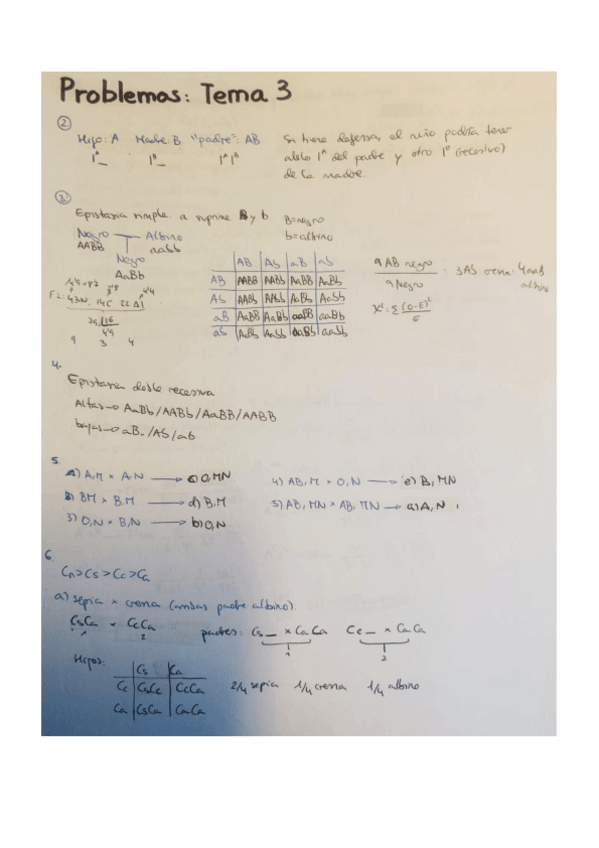 Problemas: Tema 3
2
Hijo: A Madre: B "padre": AB Si tiene defensa, el niño podría tener
Iᴬ_ Iᴮ_ IᴬIᴮ alelo Iᴬ del padre y otro I⁰ (recesivo)
de la madre.
3
Epistasia simple. a suprime B y b B=negro
b=albino
Negro Albino
AABB aabb
Negro
AaBb
AB Ab aB ab
AB AABB AABb AaBB AaBb
Ab AABb AAbb AaBb Aabb
aB AaBB AaBb aaBB aaBb
ab AaBb Aabb aaBb aabb
9 AB negro : 3Ab crema: 4aab
9 Negro albino
X²=Σ(O-E)²
E
F2: 43N. 14C 22Al
9 3 4
4.
Epistasia doble recesiva
Altas→ AaBb/AABb/AaBB/AABB
bajas→ aB-/Ab/ab
5.
1) A,M × A,N → c) O,MN
2) BM × B,M → d) B,M
3) O,N × B,N → b) O,N
4) AB,M × O,N → e) B,MN
5) AB,MN × AB,MN → a) A,N
6.
Cn>Cs>Cc>Ca
a) sepia × crema (ambas padre albino).
CsCa × CcCa padres: Cs_ × CaCa Cc_ × CaCa
1 2 1 2
Hijos:
Cs Ca
Cc CsCc CcCa 2/4 sepia 1/4 crema 1/4 albino
Ca CsCa CaCa